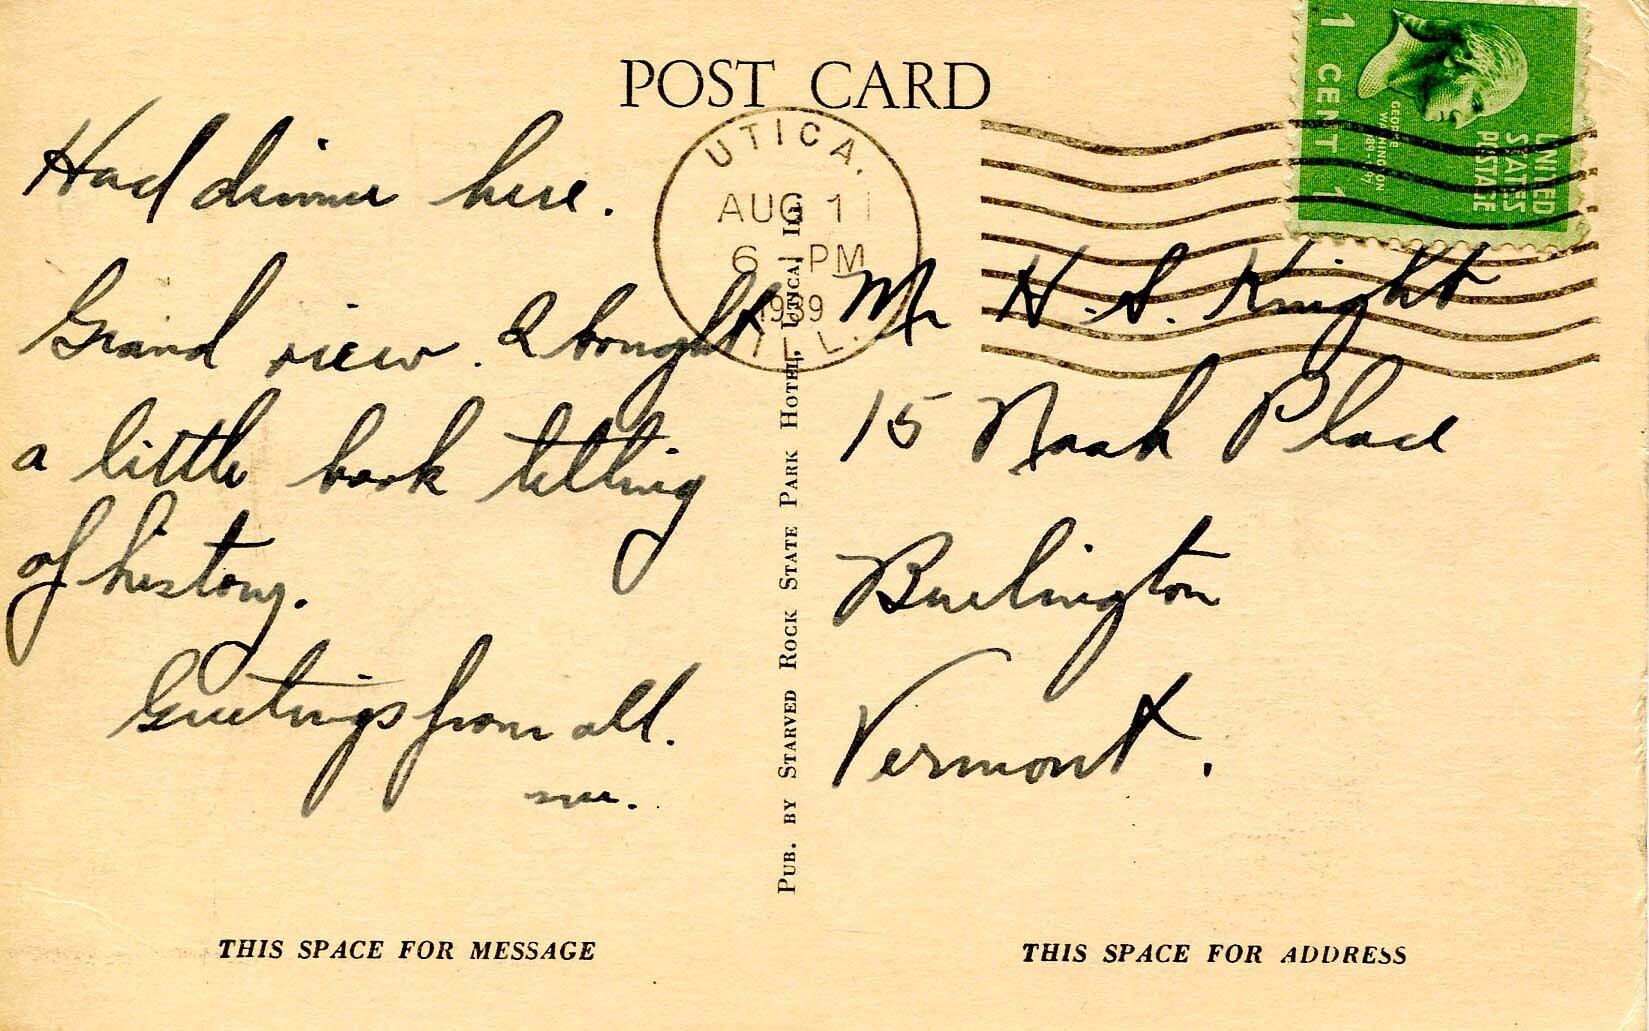 POST CARD
Had dinner here.
Grand view. I bought
a little book telling
of history.
Greetings from all.
UTICA.
AUG 11
6 - PM
1939
ILL.
1 CENT 1
GEORGE WASHINGTON
UNITED
STATES
POSTAGE
Mr H. S. Knight
15 Nash Place
Burlington
Vermont.
PUB. BY STARVED ROCK STATE PARK HOTEL, UTICA, ILL.
THIS SPACE FOR MESSAGE
THIS SPACE FOR ADDRESS